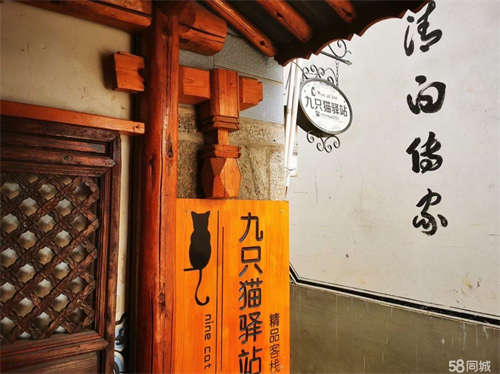 清白传家
九只猫驿站
九只猫驿站
nine cat
精品客栈
58同城